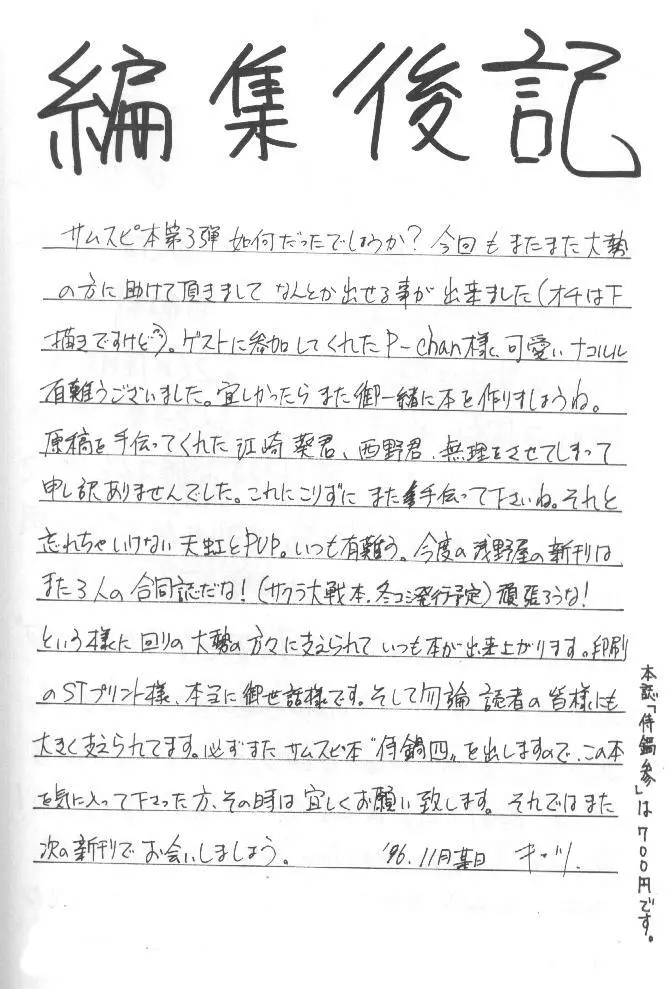 編集後記
サムスピ本第3弾如何だったでしょうか?今回もまたまた大勢
の方に助けて頂きましてなんとか出せる事が出来ました(オチは下
描きですけど)。ゲストに参加してくれたP-chan様、可愛いナコルル
有難うございました。宜しかったらまた御一緒に本を作りましょうね。
原稿を手伝ってくれた江崎葵君、西野君、無理をさせてしまって
申し訳ありませんでした。これにこりずにまた手伝って下さいね。それと
忘れちゃいけない天虹とPUP。いつも有難う。今度の浅野屋の新刊は
また3人の合同誌だな!(サクラ大戦本.冬コミ発行予定)頑張ろうな!
という様に回りの大勢の方々に支えられていつも本が出来上がります。印刷
のSTプリント様、本当に御世話様です。そして勿論読者の皆様にも
大きく支えられてます。必ずまたサムスピ本“侍鍋四„を出しますので、この本
を気に入って下さった方、その時は宜しくお願い致します。それではまた
次の新刊でお会いしましょう。 '96.11月某日 キッツ.
本誌「侍鍋参」は700円です。